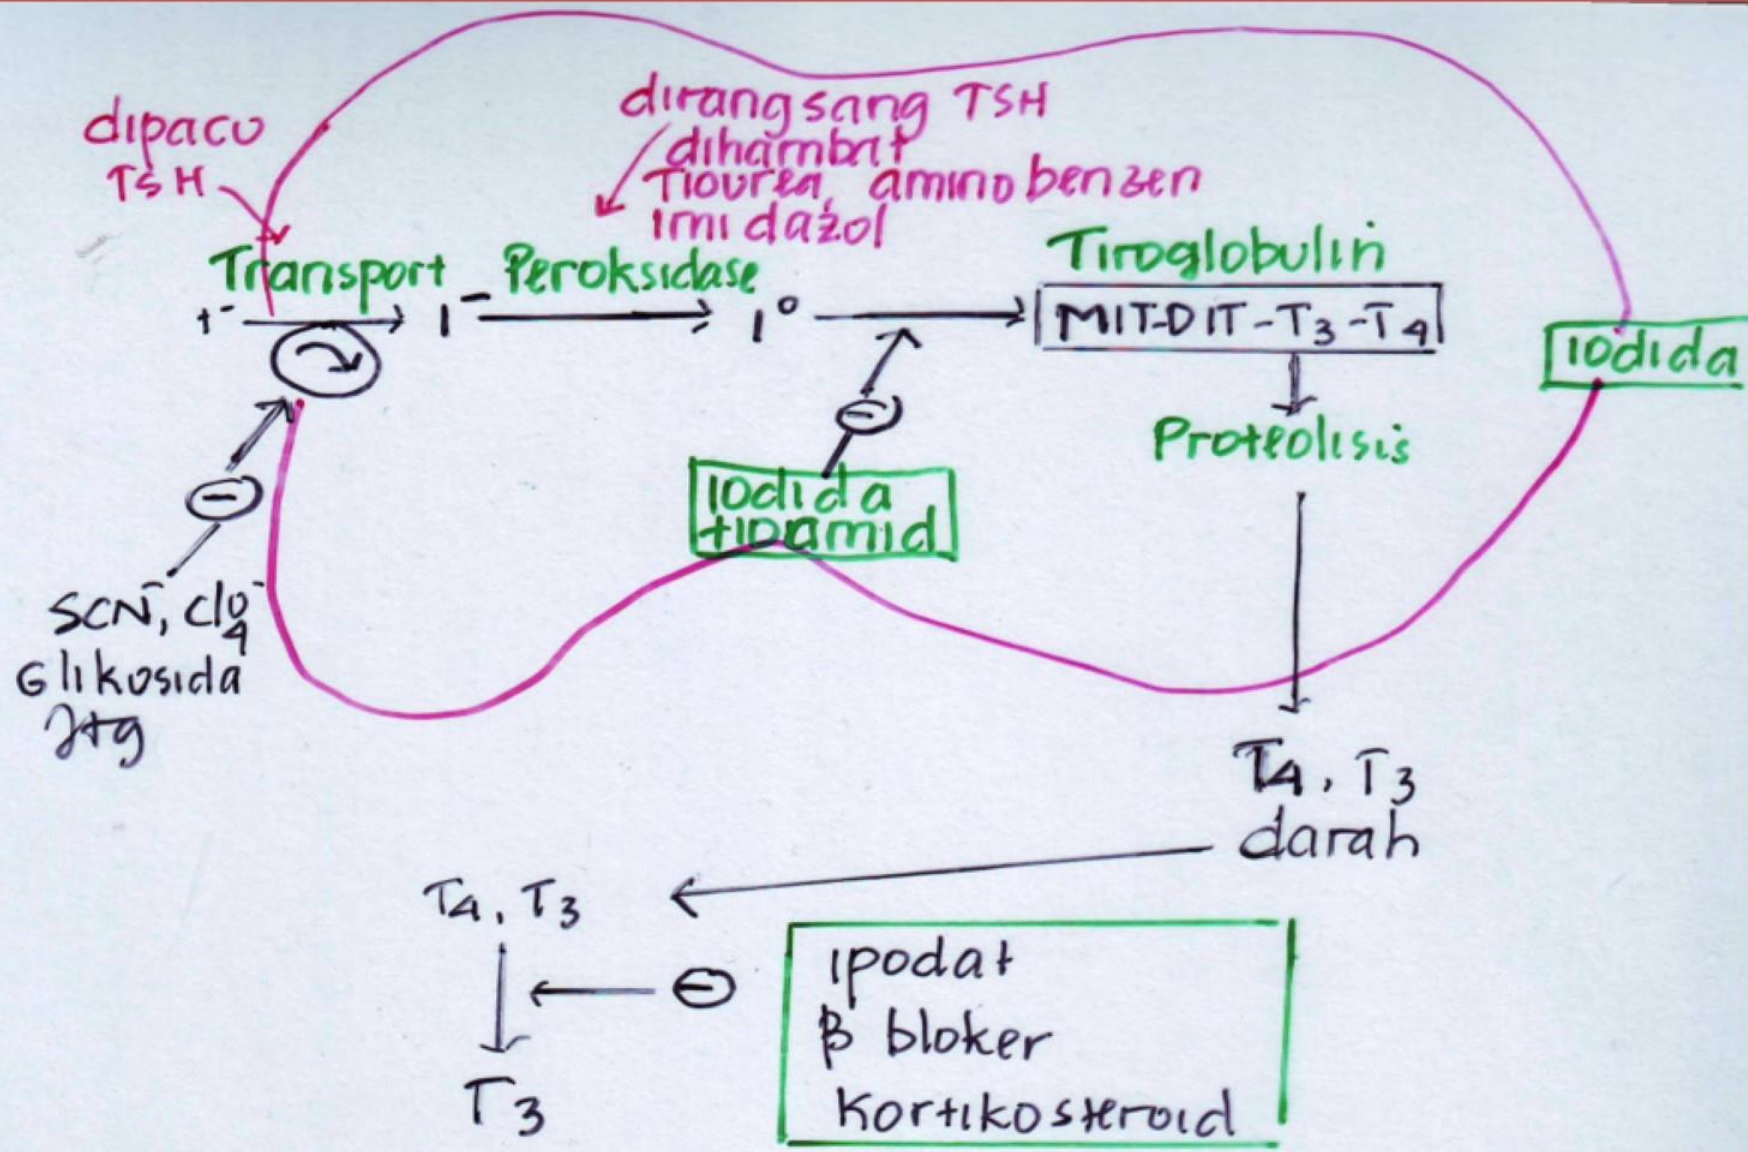 dipacu
TSH
dirangsang TSH
dihambat
Tiourea, amino benzen
imidazol
Transport
Peroksidase
Tiroglobulin
I⁻
I⁻
I°
MIT-DIT-T₃-T₄
iodida
Proteolisis
iodida
tioamid
SCN⁻, ClO₄⁻
Glikosida
jtg
T₄, T₃
darah
T₄, T₃
ipodat
β bloker
kortikosteroid
T₃